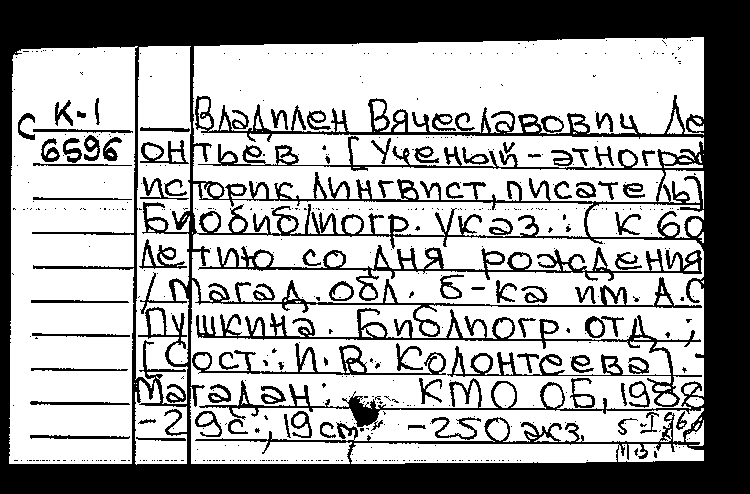 С К-1
6596
Владилен Вячеславович Ле
онтьев : [Ученый-этнограф
историк, лингвист, писатель]
Биобиблиогр. указ. : (К 60
летию со дня рождения
/ Магад. обл. б-ка им. А.С
Пушкина. Библиогр. отд. ;
[Сост.: И. В. Колонтеева]. -
Магадан : КМО ОБ, 1988
- 29с. ; 19 cm - 250 экз.